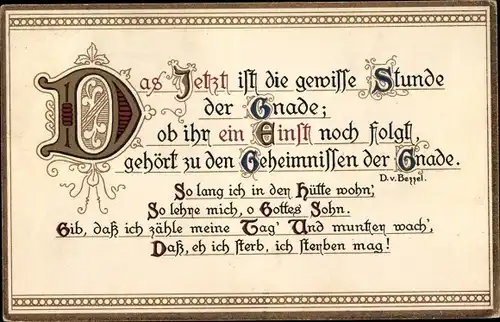 Das Jetzt ist die gewisse Stunde
der Gnade;
ob ihr ein Einst noch folgt,
gehört zu den Geheimnissen der Gnade.
D. v. Bezzel.
So lang ich in der Hütte wohn',
So lehre mich, o Gottes Sohn.
Gib, daß ich zähle meine Tag' Und munter wach',
Daß, eh ich sterb, ich sterben mag!